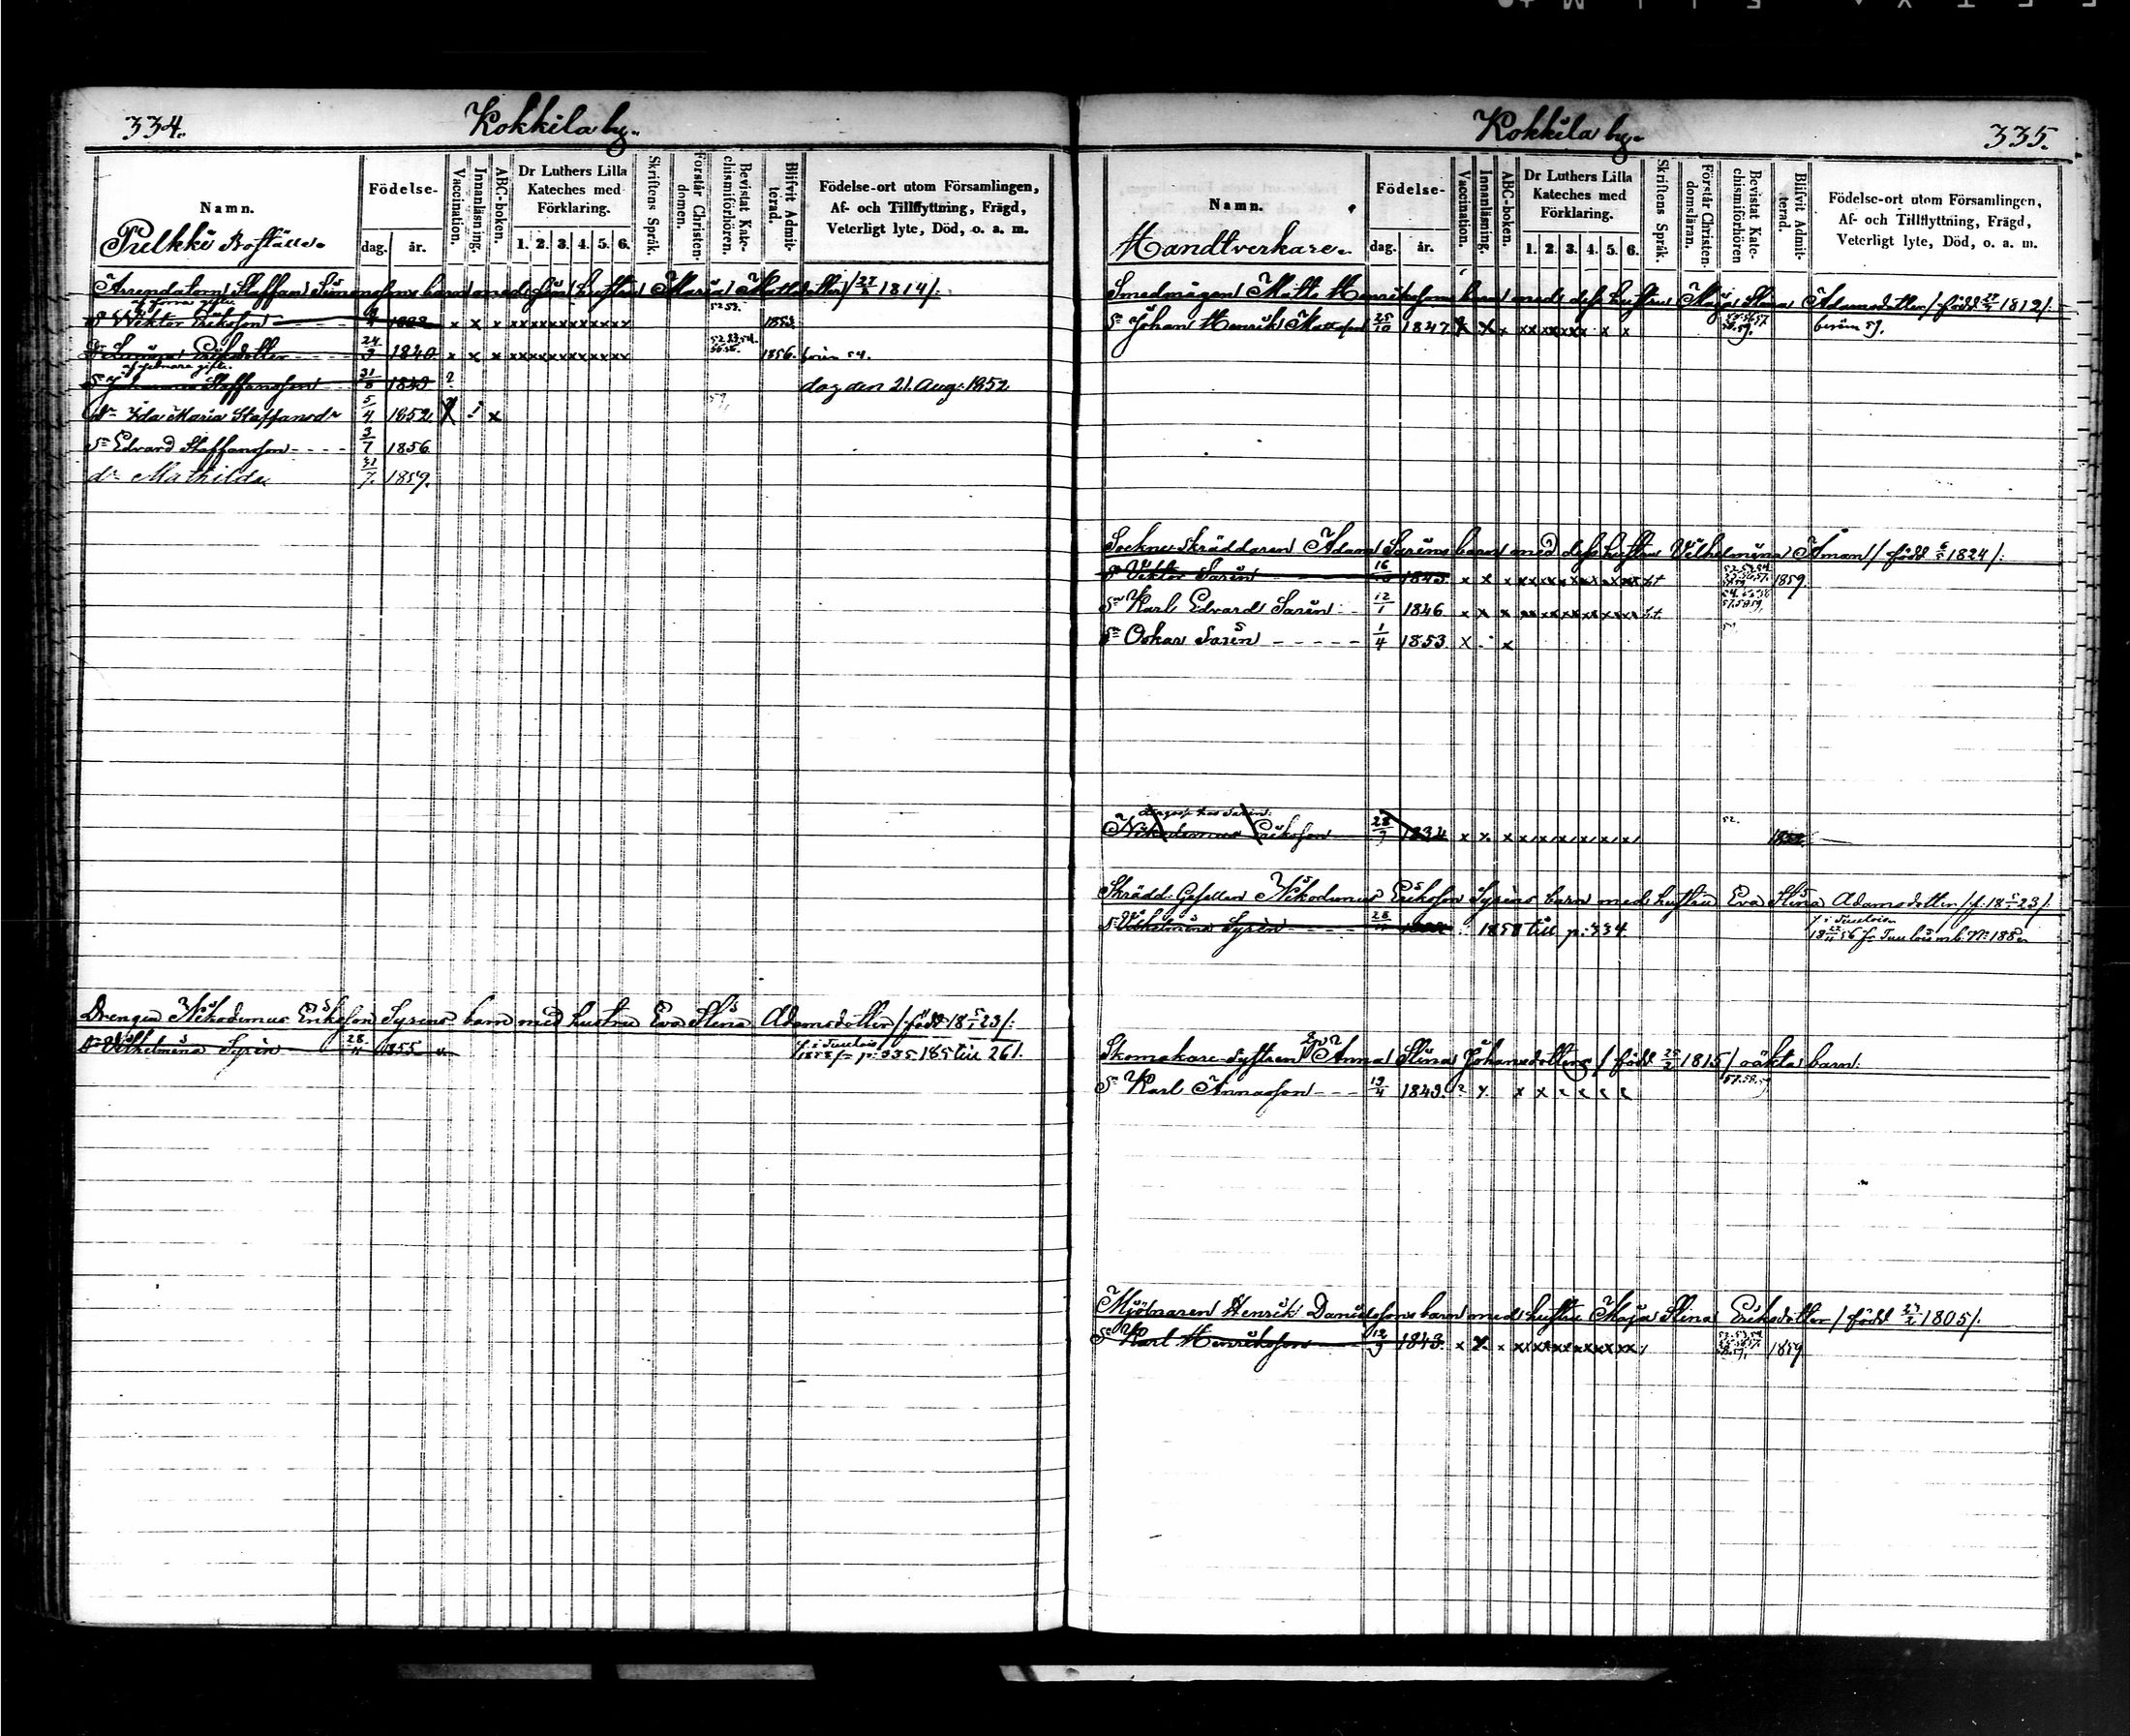 334.
Kokkila by.
Namn.
Födelse-
dag.
år.
Vaccination.
Innanläsning.
ABC-boken.
Dr Luthers Lilla
Kateches med
Förklaring.
1. 2. 3. 4. 5. 6.
Skriftens Språk.
Förstår Christen-
domen.
Bevistat Kate-
chismiförhören.
Blifvit Admit-
terad.
Födelse-ort utom Församlingen,
Af- och Tillflyttning, Frägd,
Veterligt lyte, Död, o. a. m.
Pelkki Boställe
Arrendatorn Staffan Simonsons barn med sin hustru Maria Mattsdotter 1814/:
af förra gifte
Sn Viktor Eriksson
x x x xxxxxxxxxxxx 1853
Eriksdotter 24/3 1840 x x x xxxxxxxxxxxx 1856.
Sn Johannes Staffansson 31/8 1849 ? dog den 21. Aug. 1852
dr Ida Maria Staffansdr 5/4 1852 x x
Sn Edvard Staffansson 3/7 1856
dr Mathilda 31/7 1859.
Drengen Nikodemus Eriksson Syrens barn med hustru Eva Stina Adamsdotter /född 18 5/1 23/:
dr Vilhelmina Syrén 28/11 1855 f. i Tuulois
p: 335. 185 till 261.
Kokkila by.
335.
Namn.
Födelse-
dag.
år.
Vaccination.
Innanläsning.
ABC-boken.
Dr Luthers Lilla
Kateches med
Förklaring.
1. 2. 3. 4. 5. 6.
Skriftens Språk.
Förstår Christen-
domsläran.
Bevistat Kate-
chismiförhören
Blifvit Admit-
terad.
Födelse-ort utom Församlingen,
Af- och Tillflyttning, Frägd,
Veterligt lyte, Död, o. a. m.
Handtverkare.
Smedmågen Matts Henrikssons barn med dess hustru Maja Stina Adamsdotter /född 1812/:
Sn Johan Henrik Mattsson 25/10 1847 x x x xx xxxxx x x
Sockne-Skräddaren Adam Sarins barn med dess hustru Vilhelmina Åman /född 6/5 1824/:
Sn Viktor Sarin 16 1843 x x x xxxxxxxxxxxx 1859.
Sn Karl Edvard Sarin 12/1 1846 x x x xxxxxxxxxxxx
Sn Oskar Sarin 1/4 1853. x x
hos Sarin
Nikodemus Eriksson 28/7 1834 x x x xxxxxxxxxxx 52.
Skrädd. Gesellen Nikodemus Eriksson Syréns barn med hustru Eva Stina Adamsdotter /f. 18 5/1 23/:
Vilhelmina Syrén 28/11 185 till p: 334. f. i Tuulois
56 fr Tuulois
Skomakare-Systren Anna Stina Johansdotters /född 25/2 1815/ oäkta barn:
Sn Karl Annasson 19/4 1849. ? x x x 57.58.59
Mjölnaren Henrik Danielssons barn med hustru Maja Stina Eriksdotter /född 1805/.
Sn Karl Henriksson 12/9 1843. x x x xxxxxxxxxxxx 1859